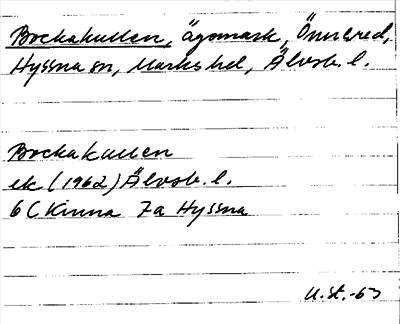 Bockakullen, ägomark, Önnered,
Hyssna sn, Marks hd, Älvsb. l.
Bockakullen
ek (1962) Älvsb. l.
6C Kinna 7a Hyssna
U.St.-63